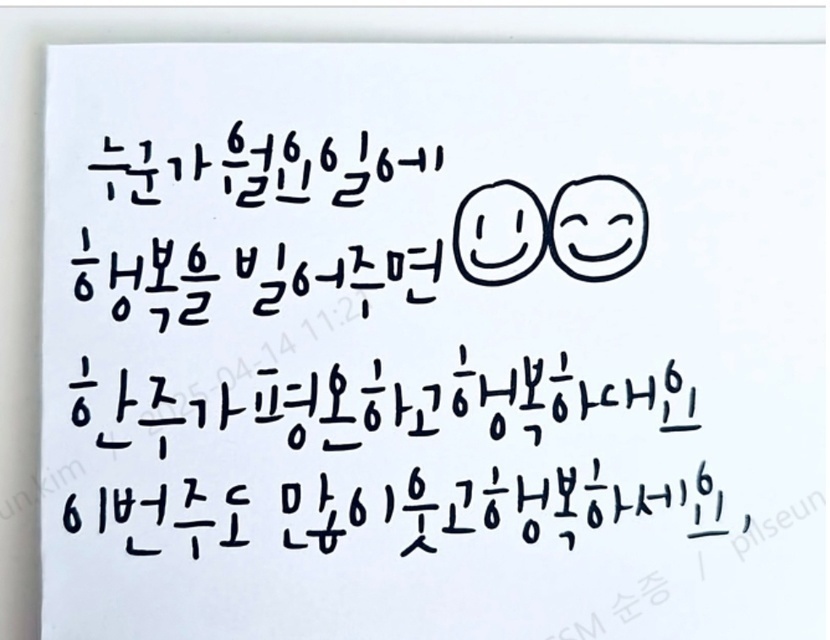 누군가 월요일에
행복을 빌어주면
한 주가 평온하고 행복하대요
이번주도 많이 웃고 행복하세요,
2025-04-14 11:2
un.kim /
SM 순증 / pilseun